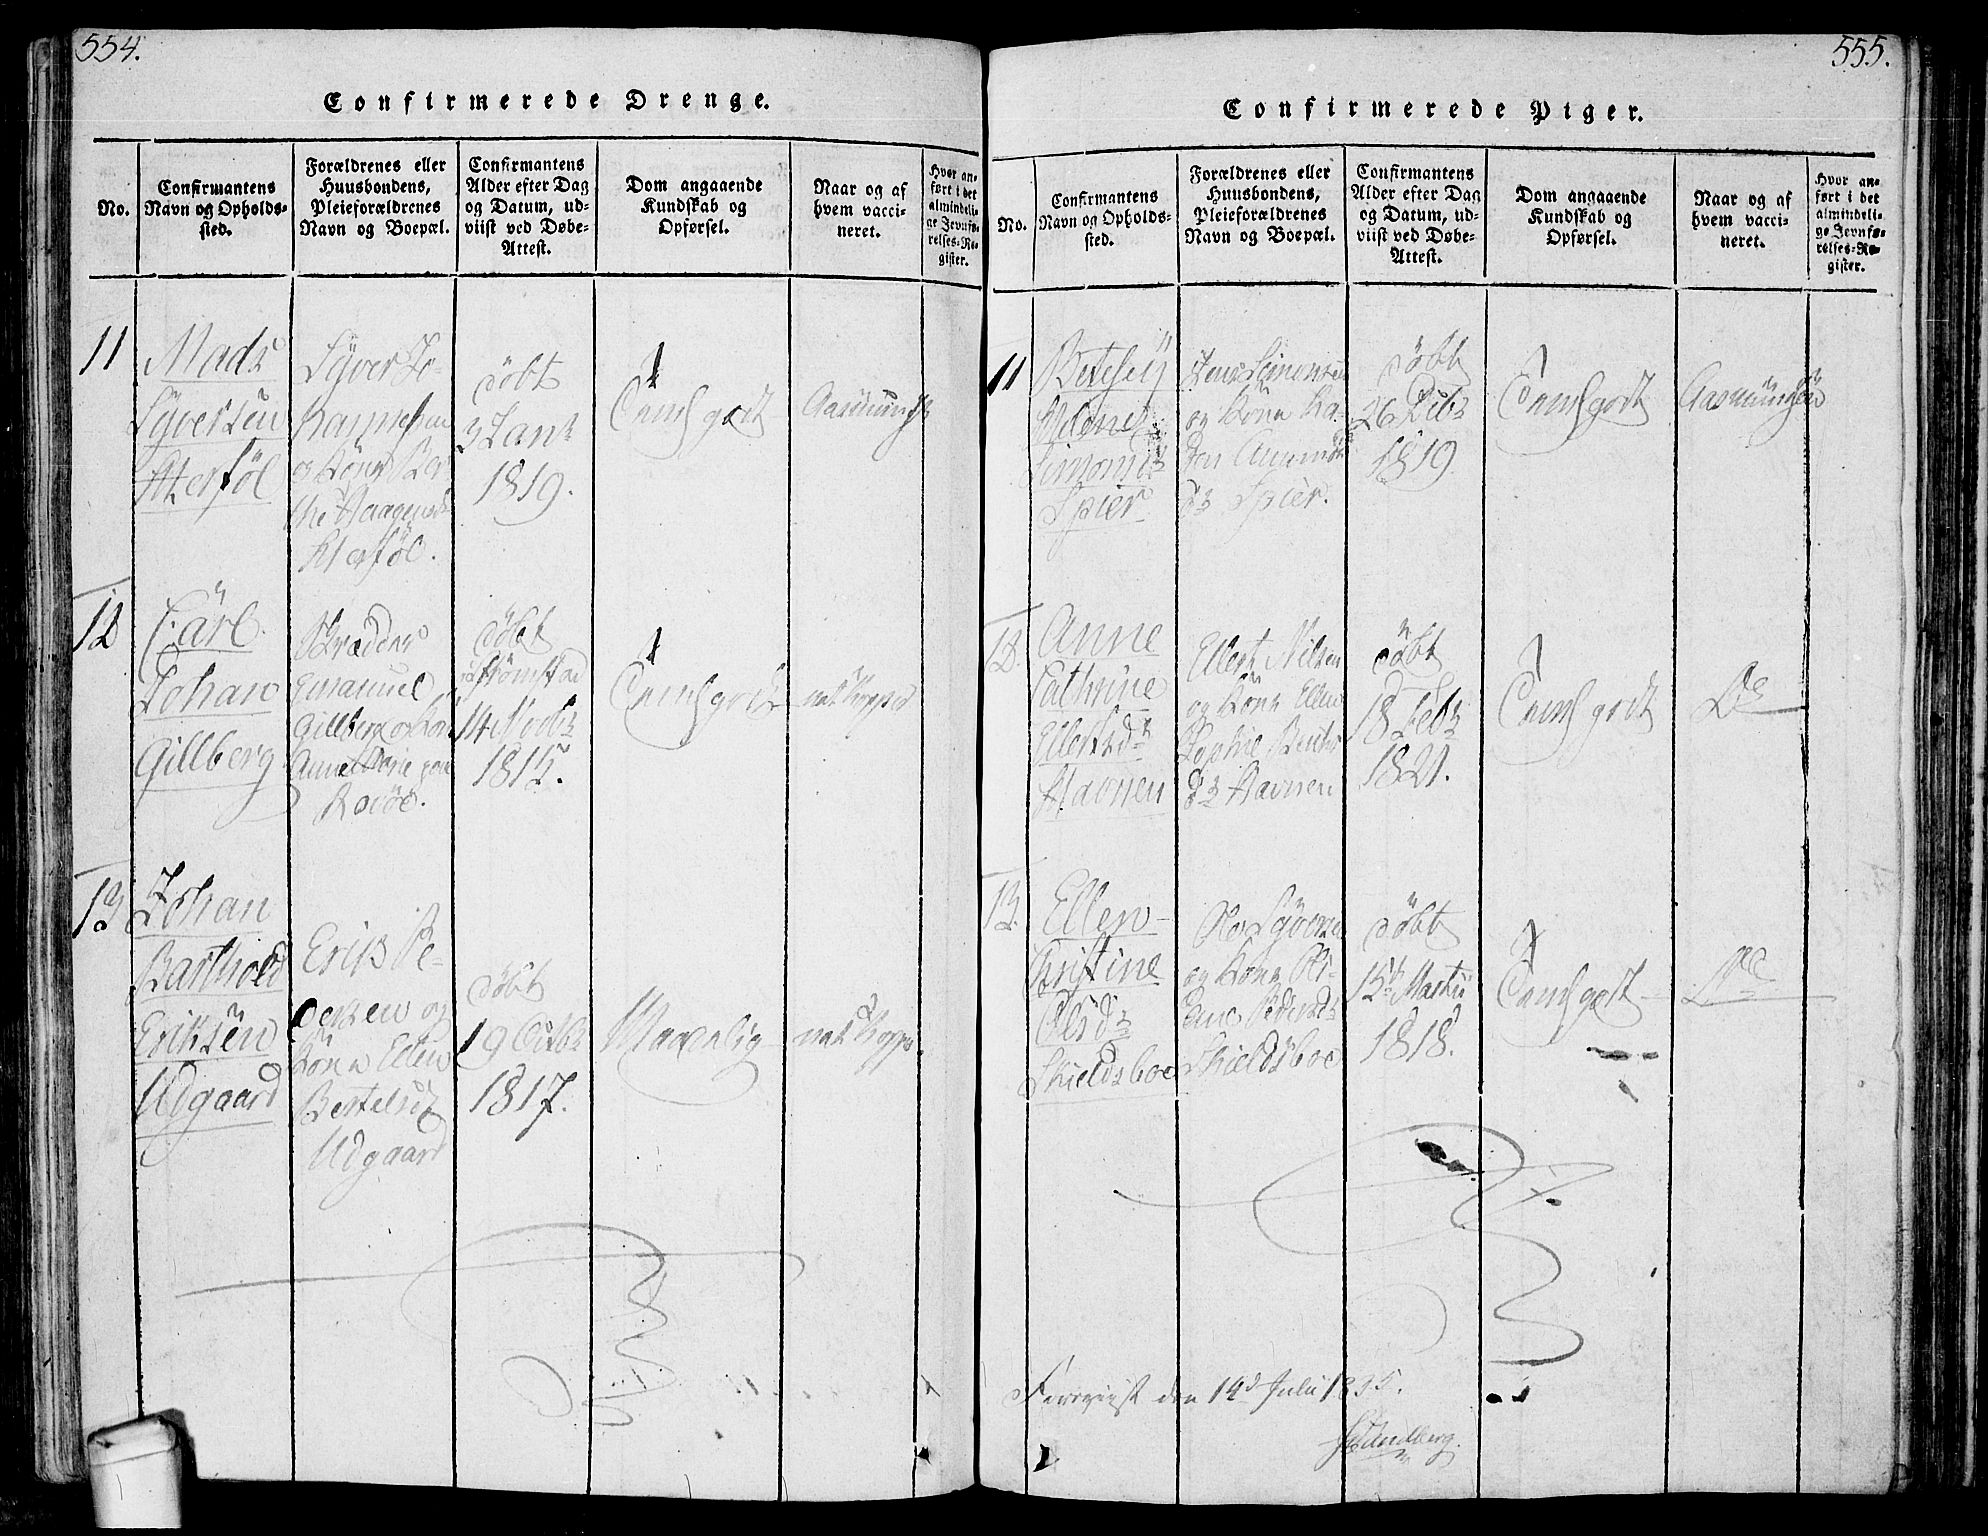 554.
Confirmerede Drenge.
No.
Confirmantens
Navn og Opholds-
sted.
Forældrenes eller
Huusbondens,
Pleieforældrenes
Navn og Boepæl.
Confirmantens
Alder efter Dag
og Datum, ud-
viist ved Døbe-
Attest.
Dom angaaende
Kundskab og
Opførsel.
Naar og af
hvem vacci-
neret.
Hvor an-
ført i det
almindeli-
ge Jevnfø-
relses-Re-
gister.
11
Mads
Syversen
Syver Jo-
og Kone Ber
the Haagensd
döbt
3 Janr
1819.
godt
Aasmunds
12
Carl
Johan
Gillberg
Skrædder
Emanuel
Gillberg og Kone
Anne Marie
döbt
i Strömstad
14 Novbr
1815.
godt
nat Kopper
13
Johan
Barthold
Eriksen
Udgaard
Erik Pe-
dersen og
Kone Ellen
Bertelsd
Udgaard
döbt
19 Octbr
1817.
Maadelig
nat Kopper
555.
Confirmerede Piger.
No.
Confirmantens
Navn og Opholds-
sted.
Forældrenes eller
Huusbondens,
Pleieforældrenes
Navn og Boepæl.
Confirmantens
Alder efter Dag
og Datum, ud-
viist ved Døbe-
Attest.
Dom angaaende
Kundskab og
Opførsel.
Naar og af
hvem vacci-
neret.
Hvor an-
ført i det
almindeli-
ge Jevnfø-
relses-Re-
gister.
11
Helene
Spier
Jens Simonsen
og Kone Ka-
Spier.
döbt
26
1819
godt
Aasmundsen
12.
Anne
Cathrine
Ellertsdr
Havnen
Ellert Nilsen
og Kone Ellen
Sophie
Havnen
döbt
18 Febr
1821.
godt
Do
13.
Ellen
Christine
Olsdr
Skieldsboe
Ole Syversen
og Kone Oli-
ane Pedersdr
Skieldsboe
döbt
15de Martii
1818.
godt
Do
Foreviist den 14d Juli 1835.